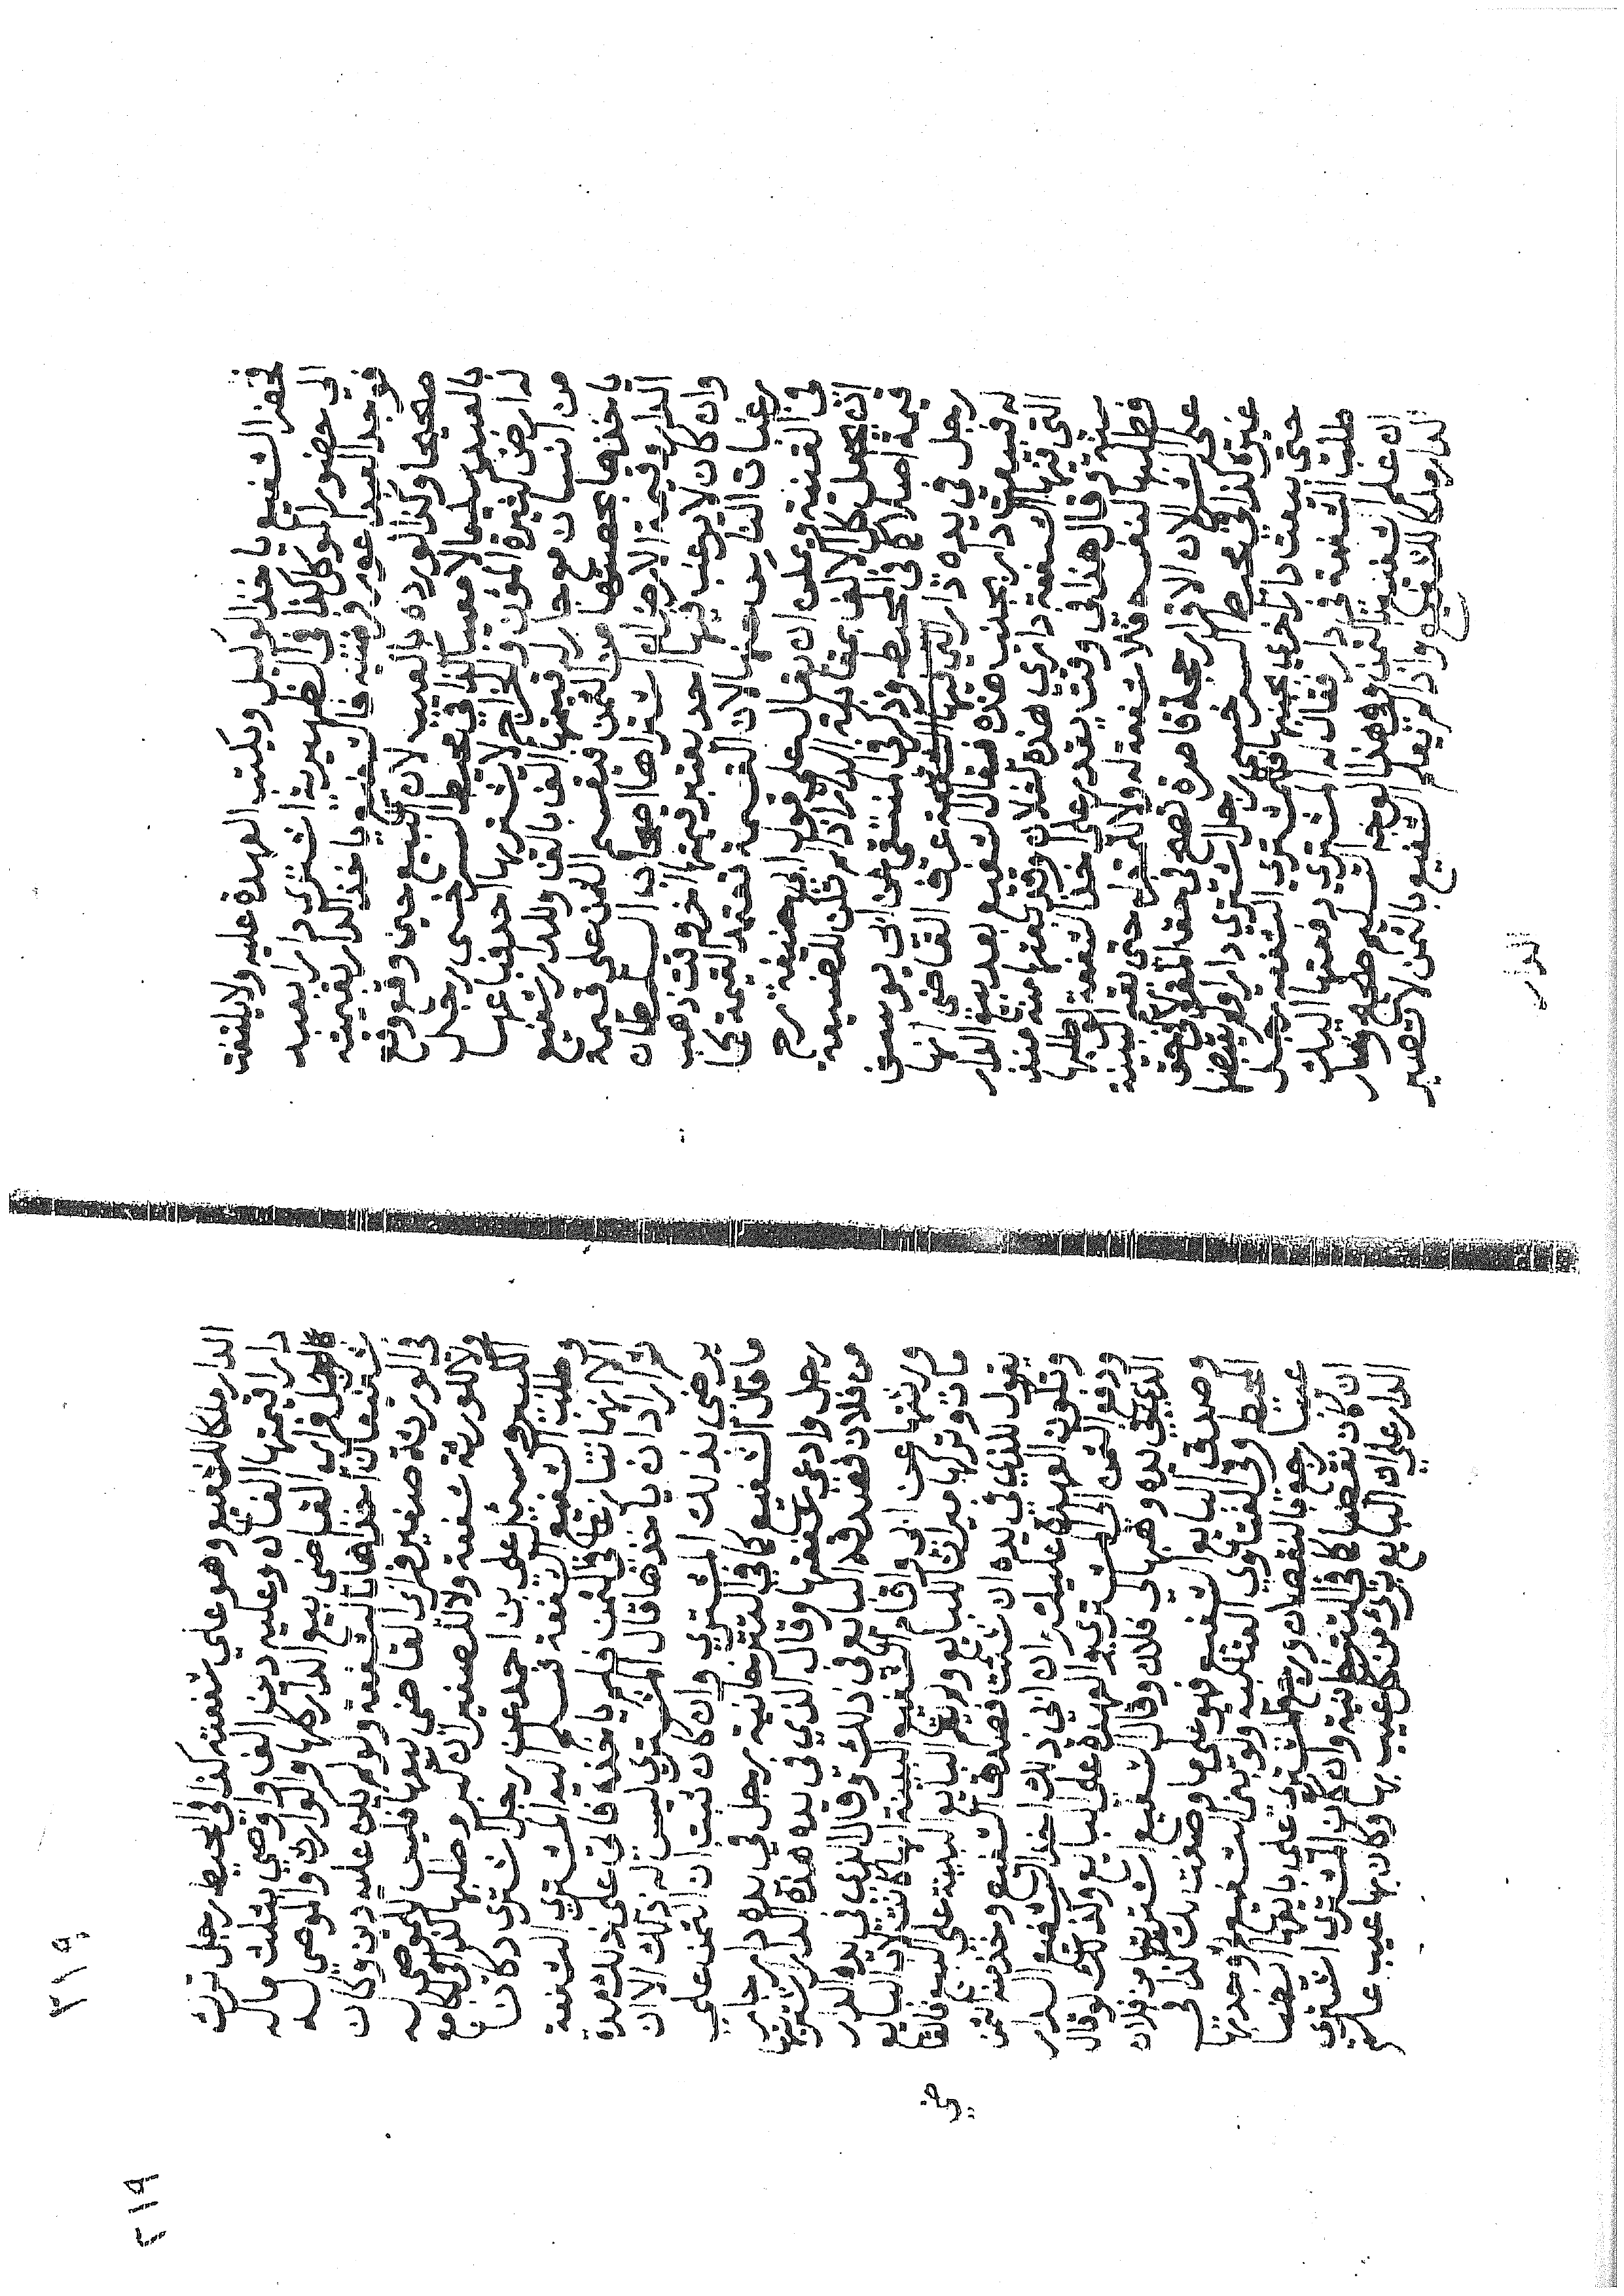 فحضر الشفيع ياخذ الوكيل ويكتب العهدة عليه ولا يلتفت
الى حضور الموكل كذا في الظهيرية اشترى دارا بعبد
فوجد العبد اعور فرضيه فالشفيع ياخذ الدار بقيمته
صحيحا وكذا لو رده بالعيب لان البيع حين وقع وقع
بالعبد سليما لا معيبا كذا في محيط السرخسى رجل
له ارض كثيرة المؤن والخراج لا يشتريها احد فباعها
من انسان مع دار له قيمتها الف بالف وللدار شفيع
ياخذها بحصتها من الثمن فيقسم الثمن على قيمة
الدار وقيمة الارض ان اشتراها اصحاب السلطان
وان كان لا يرغب فيها احد يعتبر قيمتها اخر وقت ذهب
رغبات الناس عنها لان القسمة تعتمد القيمة كذا
في القنية ويمكن ان يقال على قول ابي حنيفة رح
ان يجعل كل الالف بمقابلة الدار اذا لم تكن للضيعة
قيمة اصلا كذا في المحيط وذكر في المنتقى عن ابي يوسف
رجل في يده دار لها الشفعة عرف القاضي انها
له فبيعت دار بجنب هذه فقال الشفيع بعد بيع الدار
التي فيها الشفعة داري هذه لفلان وقد بعتها منه منذ
سنة وقال هذا في وقت يقدر على اخذ الشفعة لو طلبها
فطلبها لنفسه فلا شفعة له ولا للمقر له حتى يقيم البينة
على الشراء لان الاقرار حجة قاصرة تصح في حق المقر لا في حق
غيره كذا في محيط السرخسي رجل اشترى دارا ولم يقبضها
حتى بيعت دار اخرى بجنبها فللمشتري الشفعة رجل
طلب الشفعة في دار فقال له المشتري دفعتها اليك
ان علم الشفيع بالثمن في هذا الوجه التسليم صحيح وصار
الدار ملكا للشفيع واذا لم يعلم الشفيع بالثمن لا تصير
الدار
٢١٩
٢١٩
الدار ملكا للشفيع وهو على شفعته كذا في المحيط رجل ترك
دارا قيمتها الفان وعليه دين الف واوصى بثلث ماله
لرجل فراى القاضي بيع الدار كلها والوارث والموصى له
شفيعان اخذاها بالشفعة ولو لم يكن عليه دين وكان
في الورثة صغير فراى القاضي بيعها فليس للموصى له
ولا للورثة شفعة ولا للصغير ان كبر وطلبها كذا في الجامع
الكبير وسئل علي بن احمد عن رجل اشترى دكانا
وطلب الشفيع الشفعة فسلم اليه المشتري الشفعة
الا انهما تنازعا في الثمن فلم ياخذه فاتى على ذلك مدة
ثم اراد ان ياخذها قال المشتري ليس له ذلك الا ان
يرضى بذلك المشتري وان كان ثبت ان الثمن على
ما قال الشفيع كذا في التترخانية رجل في يده دار جاء
رجل وادعى شفعتها وقال الذي في يده هذه الدار اشتريتها
من فلان فصدقه البايع في ذلك وقال الذي في يده الدار
ورثتها عن ابي واقام الشفيع البينة انها كانت لاب البايع
مات وتركها ميراثا للبايع ولم يقم البايع البينة على البيع فالقاضي
يقول للذي في يده ان شئت فصدق الشفيع وخذ منه الثمن
وتكون العهدة عليك وان ابى ذلك اخذ الشفيع الدار
ودفع الثمن الى المشتري والعهدة على البايع وكذلك لو قال
الذي في يده وهبها لي فلان وقال الشفيع اشتريتها من فلان
وصدق البايع الشفيع فهو على ما وصفت لك كذا في
المحيط وفي الفتاوى العتابية ولو بنى الشفيع ثم وجد بها
عيبا رجع بالنقصان ورجع المشتري على بايعها ايضا
ان كان نقضها كذا في التترخانية وان كان المشتري اشترى
الدار على ان البايع بريء من كل عيب بها وكان بها عيب علم